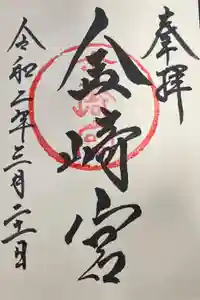 奉拝
金崎宮
令和二年三月二十一日